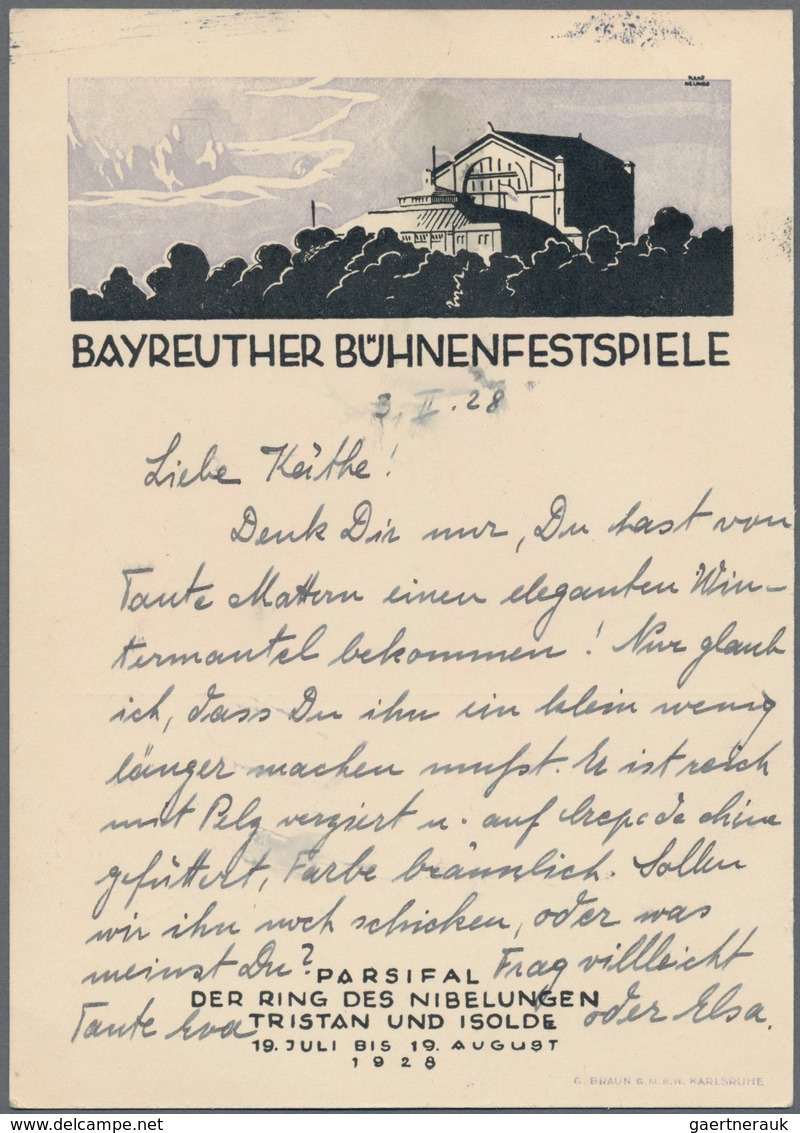 BAYREUTHER BÜHNENFESTSPIELE
3. II. 28
Liebe Käthe!
Denk Dir nur, Du hast von
Tante Mattern einen eleganten Win-
termantel bekommen! Nur glaub
ich, dass Du ihn ein klein wenig
länger machen mußt. Er ist reich
mit Pelz verziert u. auf Crepe de chine
gefüttert, Farbe bräunlich. Sollen
wir ihn noch schicken, oder was
meinst Du? Frag villleicht
PARSIFAL
DER RING DES NIBELUNGEN
Tante Eva oder Elsa.
TRISTAN UND ISOLDE
19. JULI BIS 19. AUGUST
1928
G. BRAUN G.M.B.H. KARLSRUHE
gaertnerauk